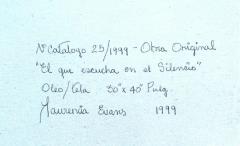 Nº Catalogo 25/1999 - Obra Original
"El que escucha en el Silencio"
Oleo/Tela 30" x 40" Pulg.
Laurentia Evans 1999